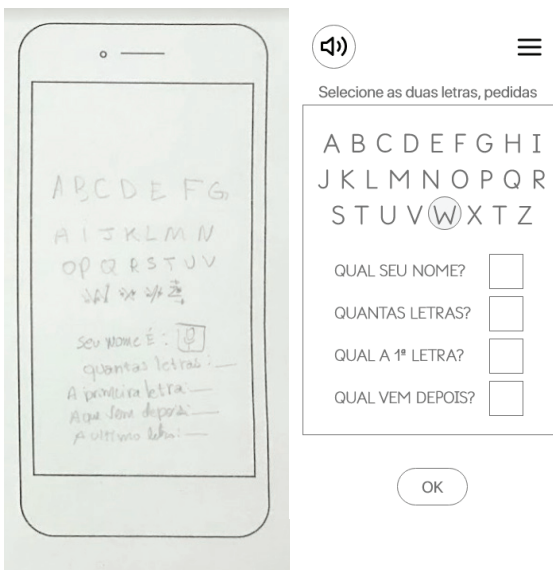 A B C D E F G
A I J K L M N
O P Q R S T U V
W X Y Z
Seu nome É :
quantas letras :
A primeira letra:
A que vem depois:
A ultimo letra:
Selecione as duas letras, pedidas
A B C D E F G H I
J K L M N O P Q R
S T U V W X T Z
QUAL SEU NOME?
QUANTAS LETRAS?
QUAL A 1ª LETRA?
QUAL VEM DEPOIS?
OK